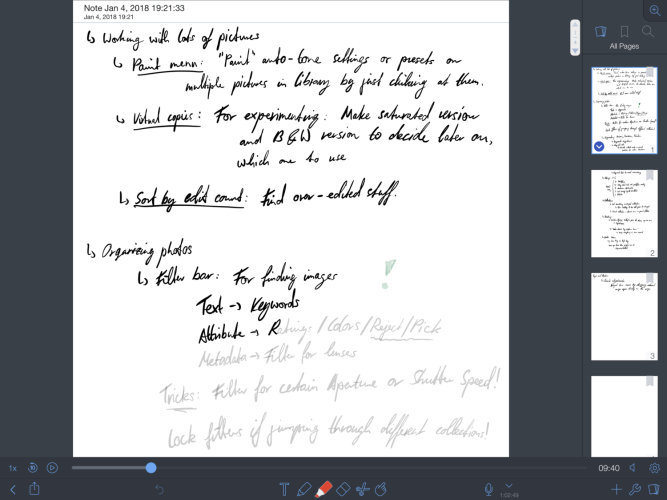 Note Jan 4, 2018 19:21:33
Jan 4, 2018 19:21
All Pages
↳ Working with lots of pictures
↳ Paint menu: "Paint" auto-tone settings or presets on
multiple pictures in Library by just clicking at them.
↳ Virtual copies: For experimenting: Make saturated version
and B&W version to decide later on,
which one to use
↳ Sort by edit count: Find over-edited stuff.
↳ Organizing photos
↳ Filter bar: For finding images !
Text → Keywords
Attribute → Ratings / Colors / Reject / Pick
Metadata → Filter for lenses
Tricks: Filter for certain Aperture or Shutter Speed!
Lock filters if jumping through different collections!
1
2
3
1x
09:40
T